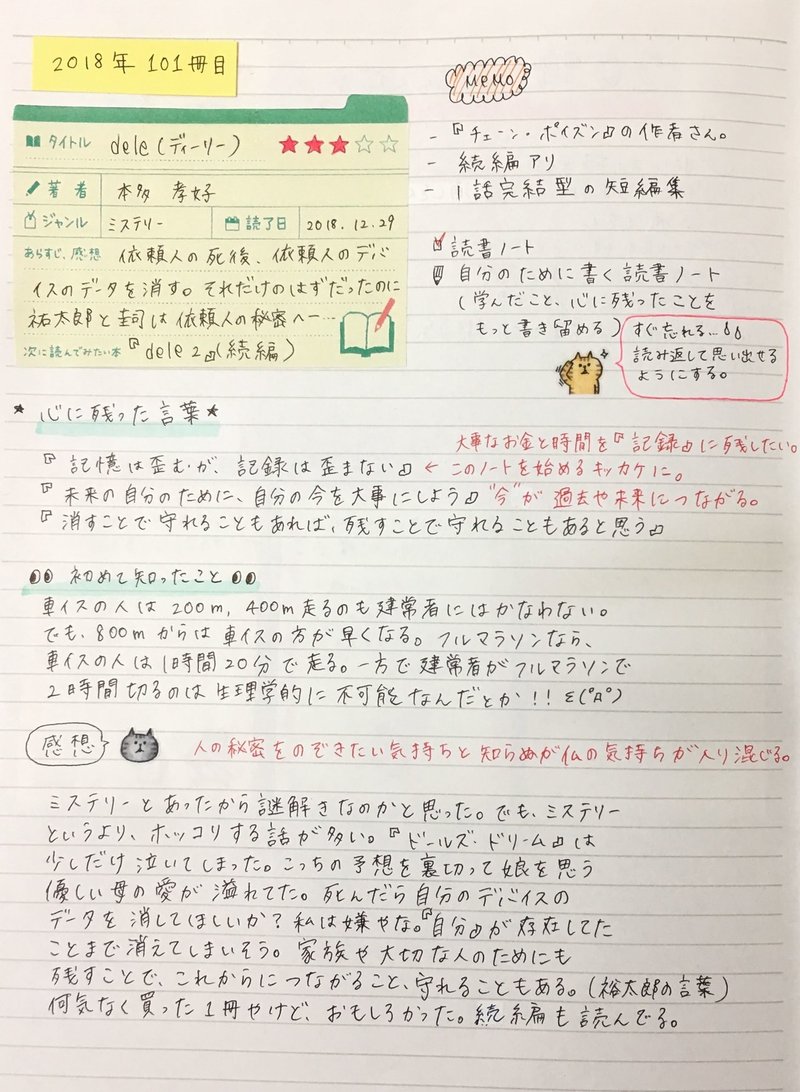 2018年 101冊目
タイトル dele(ディーリー) ★★★☆☆
著者 本多 孝好
ジャンル ミステリー 読了日 2018.12.29
あらすじ、感想 依頼人の死後、依頼人のデバ
イスのデータを消す。それだけのはずだったのに
祐太郎と圭司は依頼人の秘密へ…
次に読んでみたい本 『dele 2』(続編)
MEMO
- 『チェーン・ポイズン』の作者さん。
- 続編アリ
- 1話完結型の短編集
読書ノート
自分のために書く読書ノート
(学んだこと、心に残ったことを
もっと書き留める)
すぐ忘れる…
読み返して思い出せる
ようにする。
★ 心に残った言葉 ★
大事なお金と時間を『記録』に残したい。
『記憶は歪むが、記録は歪まない』 ← このノートを始めるキッカケに。
『未来の自分のために、自分の今を大事にしよう』 "今"が過去や未来につながる。
『消すことで守れることもあれば、残すことで守れることもあると思う』
初めて知ったこと
車イスの人は200m, 400m走るのも建常者にはかなわない。
でも、800mからは車イスの方が早くなる。フルマラソンなら、
車イスの人は1時間20分で走る。一方で建常者がフルマラソンで
2時間切るのは生理学的に不可能なんだとか!! Σ(゚Д゚)
感想
人の秘密をのぞきたい気持ちと知らぬが仏の気持ちが入り混じる。
ミステリーとあったから謎解きなのかと思った。でも、ミステリー
というより、ホッコリする話が多い。『ドールズ・ドリーム』は
少しだけ泣いてしまった。こっちの予想を裏切って娘を思う
優しい母の愛が溢れてた。死んだら自分のデバイスの
データを消してほしいか?私は嫌やな。『自分』が存在してた
ことまで消えてしまいそう。家族や大切な人のためにも
残すことで、これからにつながること、守れることもある。(裕太郎の言葉)
何気なく買った1冊やけど、おもしろかった。続編も読んでる。